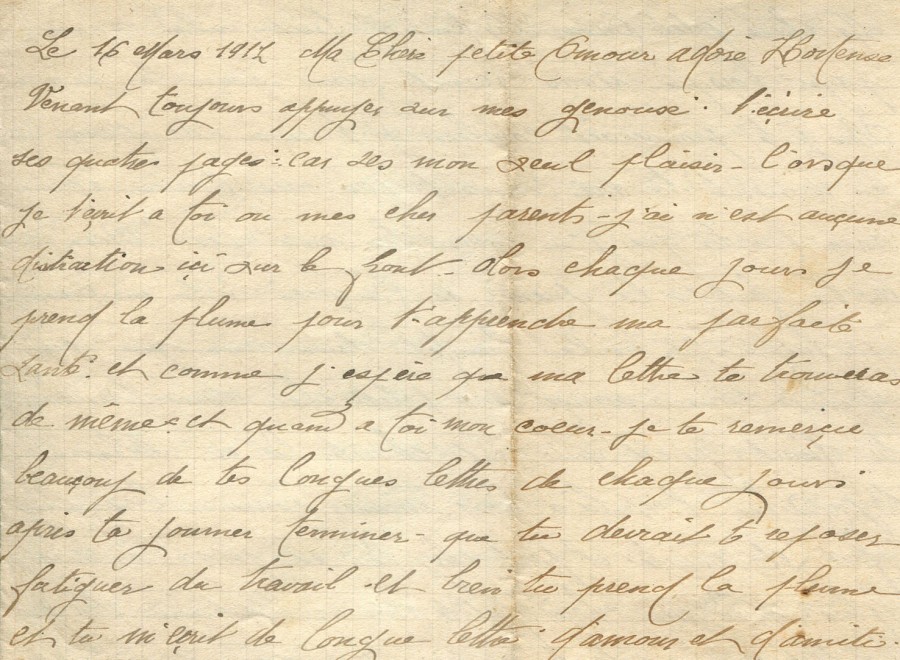 Le 16 Mars 1917 Ma Chere petite Amour adoré Hortense
Venant toujours appuyer sur mes genoux. t'éçrire
ses quatres pages - car ses mon seul plaisir - l'orsque
je t'éçrit a toi ou mes cher parents - j'ai n'est auçune
distraction içi sur le front - Alors chaque jours je
prend la plume pour t'apprendre ma parfaite
santé. et comme j'espère que ma lettre te trouveras
de même. et quand a toi mon coeur - je te remerçie
beauçoup de tes longues lettres de chaque jours
après ta journer terminer - que tu devrait te reposer
fatiguer du travail - et bien tu prend la plume
et tu m'éçrit de longue lettre d'amour et d'amitié.